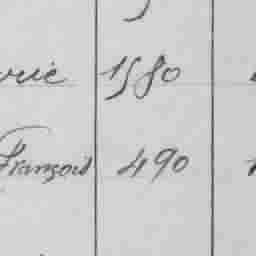 1580
François 490